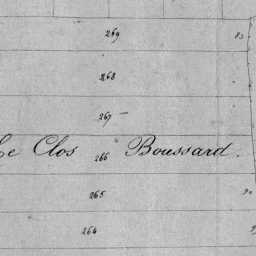 269
268
267
Le Clos 266 Boussard.
265
264